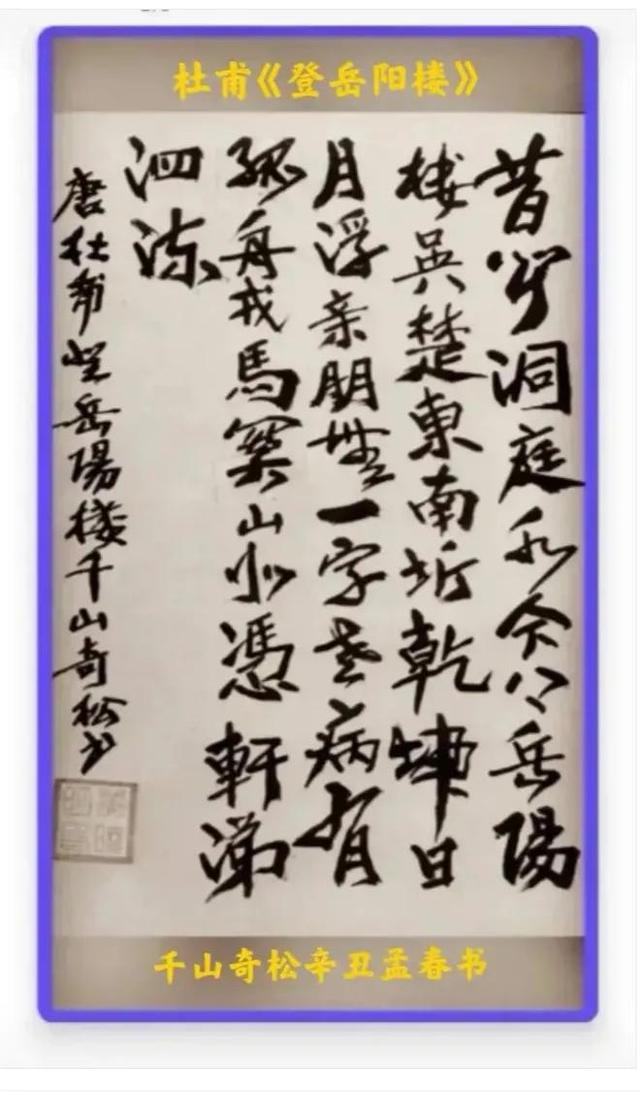 杜甫《登岳阳楼》
昔闻洞庭水今上岳陽
楼吳楚東南坼乾坤日
月浮亲朋無一字老病有
孤舟戎馬關山北憑軒涕
泗流
唐杜甫登岳陽楼千山奇松书
千山奇松辛丑孟春书